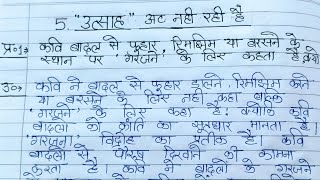 5. "उत्साह" अट नहीं रही है
प्र०१= कवि बादल से फुहार, रिमझिम या बरसने के
स्थान पर 'गरजने' के लिए कहता है, क्यों
उ०= कवि ने बादल से फुहार डालने, रिमझिम करने
या बरसने के लिए नहीं कहा बल्कि
'गरजने' के लिए कहा है; क्योंकि कवि
बादलों को क्रांति का सूत्रधार मानता है।
'गरजना' विद्रोह का प्रतीक है। कवि
बादलों से पौरुष दिखाने की कामना
करता है। कवि ने बादलों के गरजने